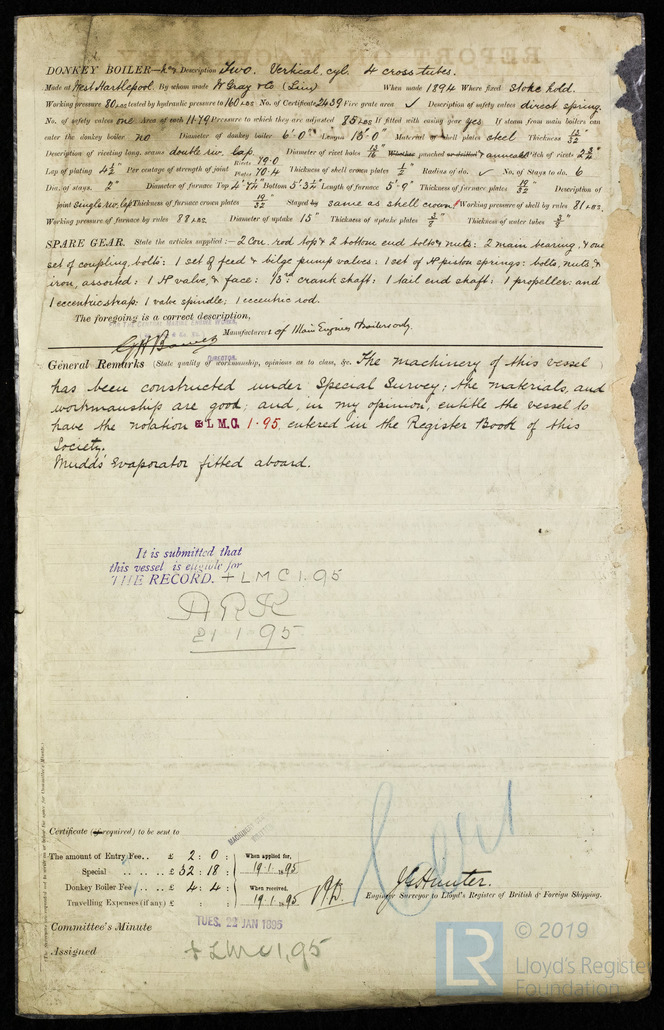 DONKEY BOILER— No. Description Two. Vertical. cyl. 4 cross tubes.
Made at West Hartlepool. By whom made W Gray & Co (Lim) When made 1894 Where fixed stoke hold.
Working pressure 80 LBS tested by hydraulic pressure to 160 LBS No. of Certificate 2439 Fire grate area ✓ Description of safety valves direct spring.
No. of safety valves one Area of each 11.79 Pressure to which they are adjusted 85 LBS If fitted with easing gear yes If steam from main boilers can
enter the donkey boiler no Diameter of donkey boiler 6'-0" Length 13'-0" Material of shell plates steel Thickness 13/32
Description of riveting long. seams double riv. lap. Diameter of rivet holes 13/16 Whether punched or drilled & annealed Pitch of rivets 2 3/4
Lap of plating 4 1/2" Per centage of strength of joint Rivets 79.0 Plates 70.4 Thickness of shell crown plates 1/2" Radius of do. ✓ No. of Stays to do. 6
Dia. of stays. 2" Diameter of furnace Top 4'-7 1/4" Bottom 5'-3 1/4" Length of furnace 5'-9" Thickness of furnace plates 19/32" Description of
joint single riv. lap Thickness of furnace crown plates 19/32 Stayed by same as shell crown Working pressure of shell by rules 81 LBS.
Working pressure of furnace by rules 88 LBS. Diameter of uptake 15" Thickness of uptake plates 3/8" Thickness of water tubes 3/8"
SPARE GEAR. State the articles supplied:— 2 Con. rod top & 2 bottom end bolts & nuts: 2 main bearing, & one
set of coupling bolts: 1 set of feed & bilge pump valves: 1 set of HP piston springs: bolts, nuts, &
iron, assorted: 1 HP valve, & face: 1/3rd crank shaft: 1 tail end shaft: 1 propeller: and
1 eccentric strap: 1 valve spindle; 1 eccentric rod.
The foregoing is a correct description,
Manufacturer of Main Engines & Boilers only.
DIRECTOR.
General Remarks (State quality of workmanship, opinions as to class, &c. The machinery of this vessel
has been constructed under Special Survey; the materials, and
workmanship are good; and, in my opinion, entitle the vessel to
have the notation ✠ L.M.C. 1.95. entered in the Register Book of this
Society.
Mudd's Evaporator fitted aboard.
It is submitted that
this vessel is eligible for
THE RECORD. + LMC 1.95
21.1.95
Certificate (if required) to be sent to
The amount of Entry Fee.. £ 2 : 0 : When applied for,
Special .. £ 32 : 18 : 19.1.1895
Donkey Boiler Fee £ 4 : 4 : When received,
Travelling Expenses (if any) £ : : 19.1.1895
J G Hunter.
Engineer Surveyor to Lloyd's Register of British & Foreign Shipping.
Committee's Minute TUES. 22 JAN 1895
Assigned + LMC 1,95
LR © 2019
Lloyd's Register
Foundation